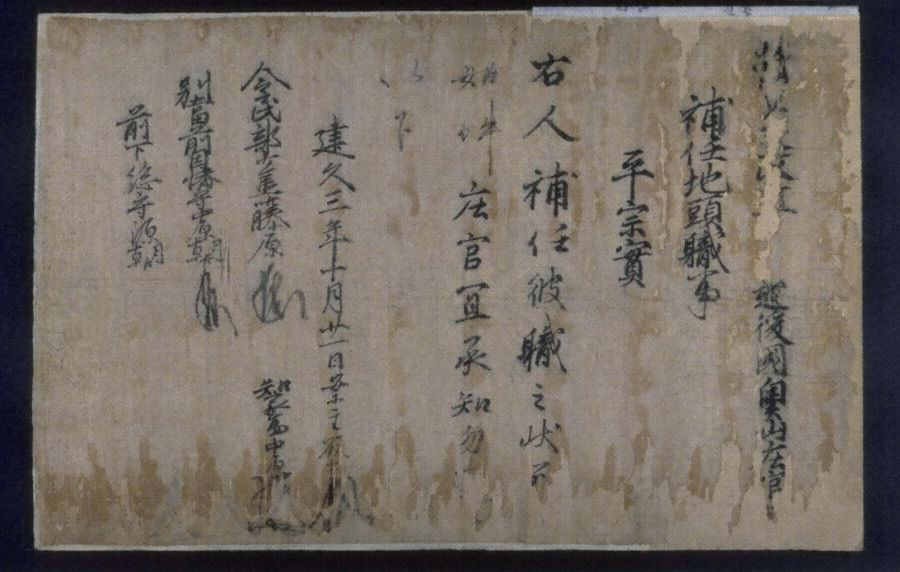 越後国奥山庄官
補任地頭職事
平宗實
右人補任彼職之状
如件庄官宜承知勿
下
建久三年十月廿一日案主
令民部少丞藤原
知家事中原
別當前因幡守中原朝臣
前下総守源朝臣